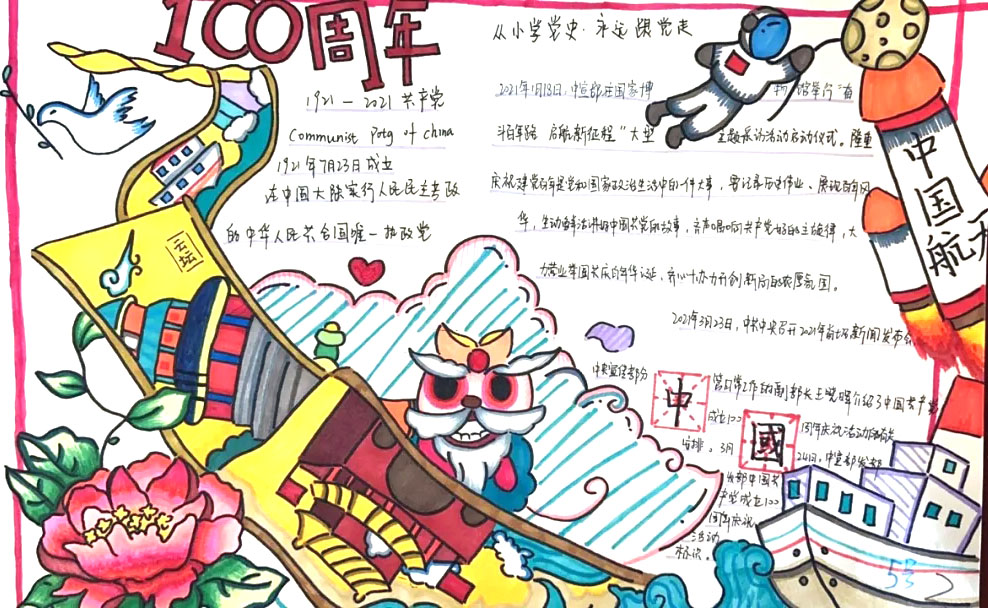 100周年
从小学党史·永远跟党走
1921-2021 共产党
Communist Paty of china
1921年7月23日成立
在中国大陆实行人民民主专政
的中华人民共合国唯一执政党
2021年1月18日,中宣部在国家博物馆举行"奋
斗百年路 启航新征程"大型主题采访活动启动仪式。隆重
庆祝建党百年是党和国家政治生活中的一件大事,要记录历史伟业、展现百年风
华,生动鲜活讲好中国共产党的故事,高声唱响共产党好的主旋律,大
力营造举国长庆百年华诞、齐心协力开创新局的浓厚氛围。
2021年3月23日,中共中央召开2021年首场新闻发布会
中央宣传部分管日常工作的副部长王晓晖介绍了中国共产党
成立100周年庆祝活动有关
安排。3月24日,中宣部发部
中国共
产党成立100
周年庆祝
活动
标识。
云坛
中
國
中国航天